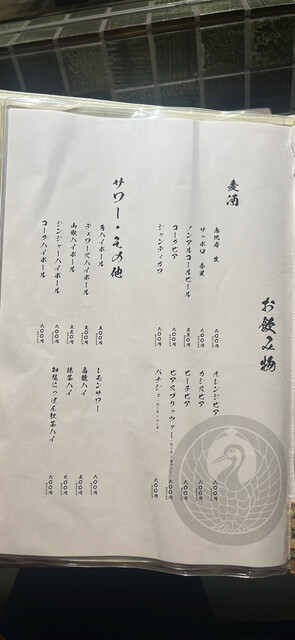 お飲み物
麦酒
サッポロ 赤星 六〇〇円
ノンアルコールビール 五〇〇円
コークビア 六〇〇円
シャンディガフ 六〇〇円
オレンジビア 六〇〇円
カシスビア 六〇〇円
ピーチビア 六〇〇円
ビアスプリッツァー
パナシェ
サワー・その他
角ハイボール 五〇〇円
デュワーズハイボール 五〇〇円
山椒ハイボール 五五〇円
ジンジャーハイボール 六〇〇円
コークハイボール 六〇〇円
レモンサワー 五〇〇円
烏龍ハイ 五〇〇円
抹茶ハイ
和紅につぽん紅茶ハイ 六〇〇円